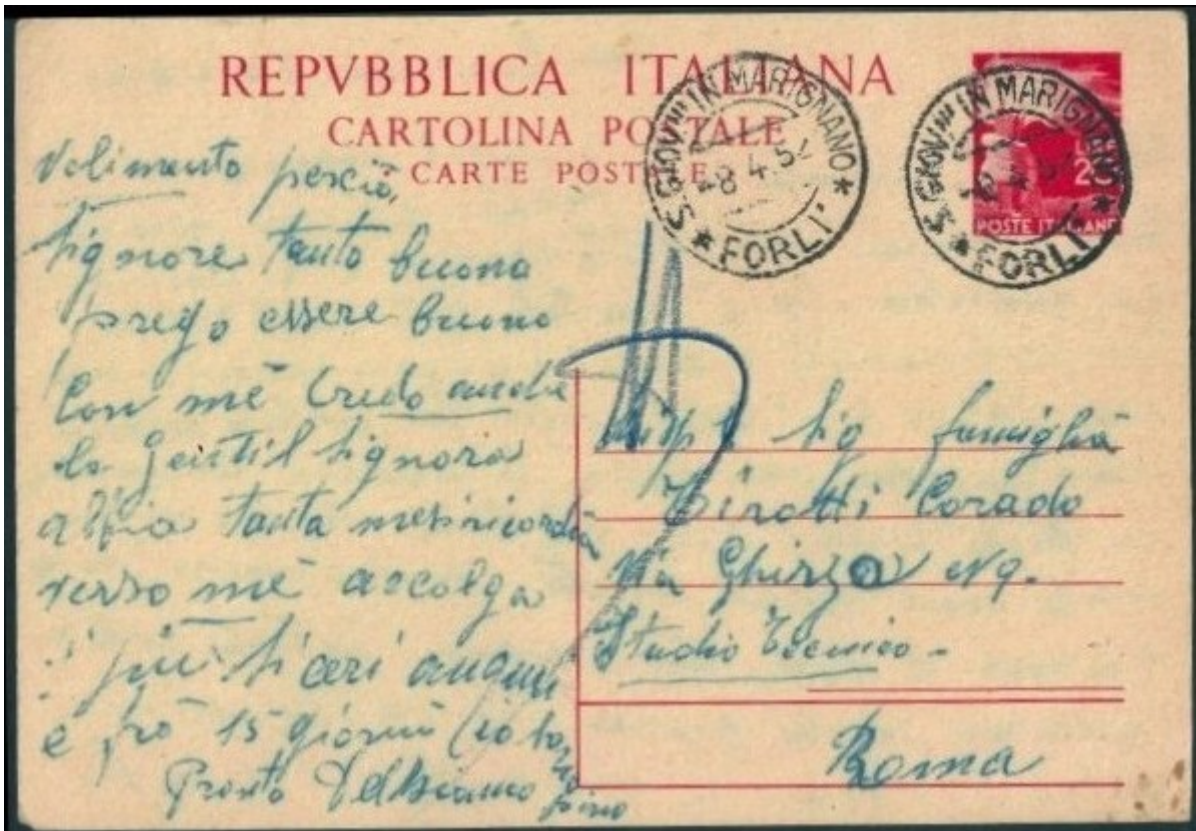 REPVBBLICA ITALIANA
CARTOLINA POSTALE
CARTE POSTALE
S. GIOV. IN MARIGNANO
8.4.52
* FORLI' *
S. GIOV. IN MARIGNANO
* FORLI' *
20
POSTE ITALIANE
perciò,
Signore tanto buono
prego essere buono
Con mè Credo anche
la Gentil Signora
abbia tanta mesiricordia
verso mè accolga
i più Siceri auguri
è frò 15 giorni io
Pronto
Sig famiglia
Corado
Via Ghirza N 9.
Studio Tecnico -
Roma